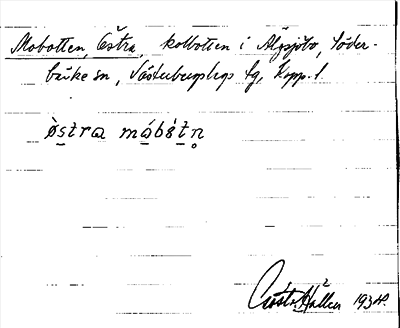 Mobotten, Östra, kolbotten i Älgsjöbo, Söder-
bärke sn, Västerbergslags fg, Kopp. l.
östra måbòtn
Gösta Hallen 1934.